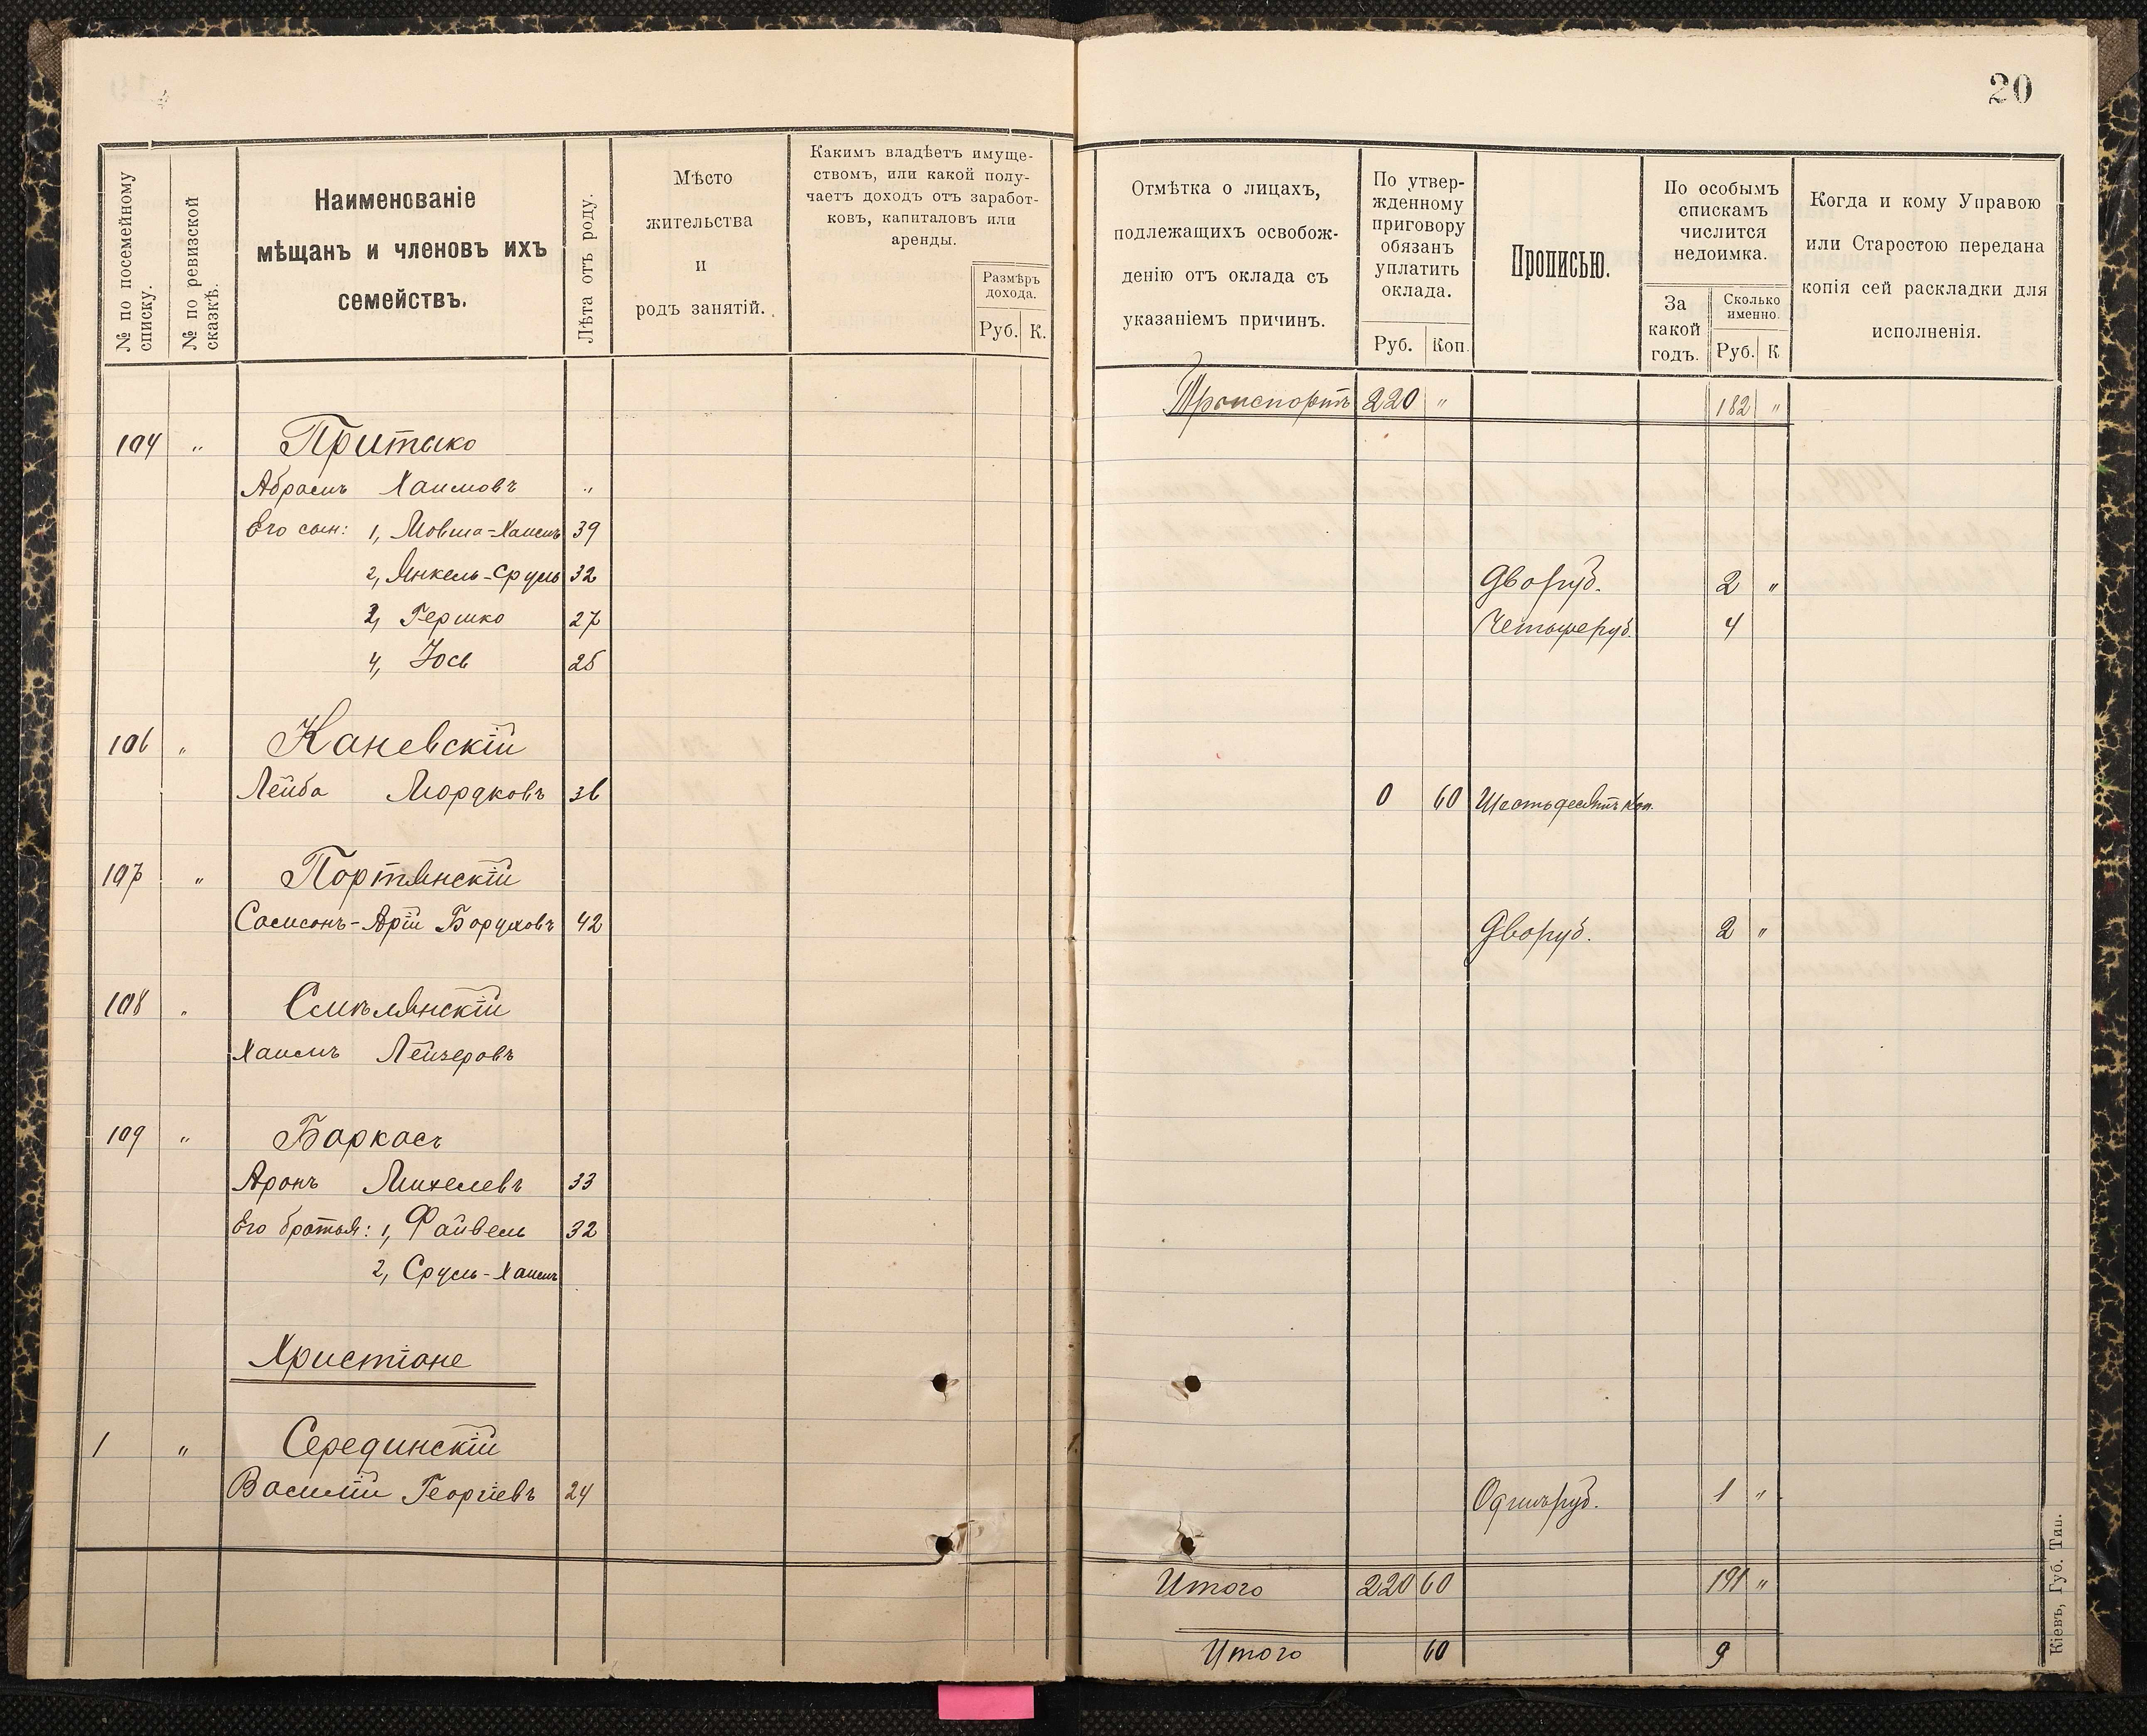 20
№ по посемейному списку.
№ по ревизской сказкѣ.
Наименованіе
мѣщанъ и членовъ ихъ
семействъ.
Лѣта отъ роду.
Мѣсто
жительства
и
родъ занятій.
Какимъ владѣетъ имуще-
ствомъ, или какой полу-
чаетъ доходъ отъ заработ-
ковъ, капиталовъ или
аренды.
Размѣръ
дохода.
Руб. К.
Отмѣтка о лицахъ,
подлежащихъ освобож-
денію отъ оклада съ
указаніемъ причинъ.
По утвер-
жденному
приговору
обязанъ
уплатить
оклада.
Руб. Коп.
Прописью.
По особымъ
спискамъ
числится
недоимка.
За
какой
годъ.
Сколько
именно.
Руб. К
Когда и кому Управою
или Старостою передана
копія сей раскладки для
исполненія.
Транспортъ 220 " 182 "
104 " Притыко
Абрамъ Хаимовъ "
Его сын: 1, Мовша-Хаимъ 39
2, Янкель-Сруль 32 Два руб. 2 "
3, Гершко 27 Четыре руб. 4
4, Іось 25
106 " Каневскій
Лейба Мордковъ 36 0 60 Шестьдесятъ коп.
107 " Портянскій
Самсонъ-Арій Боруховъ 42 Два руб. 2 "
108 " Смѣлянскій
Хаимъ Лейзеровъ
109 " Баркасъ
Аронъ Михелевъ 33
Его братья: 1, Файвель 32
2, Сруль-Хаимъ
Христіане
1 " Серединскій
Василій Георгіевъ 24 Одинъ руб. 1 "
Итого 220 60 191 "
Итого 60 9
Кіевъ, Губ. Тип.